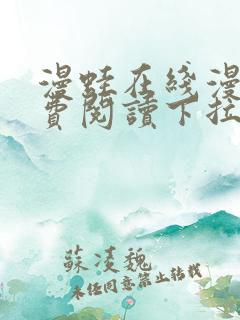 漫蛙在线漫
费閱讀下拉
蘇淩魏
未经同意禁止转载